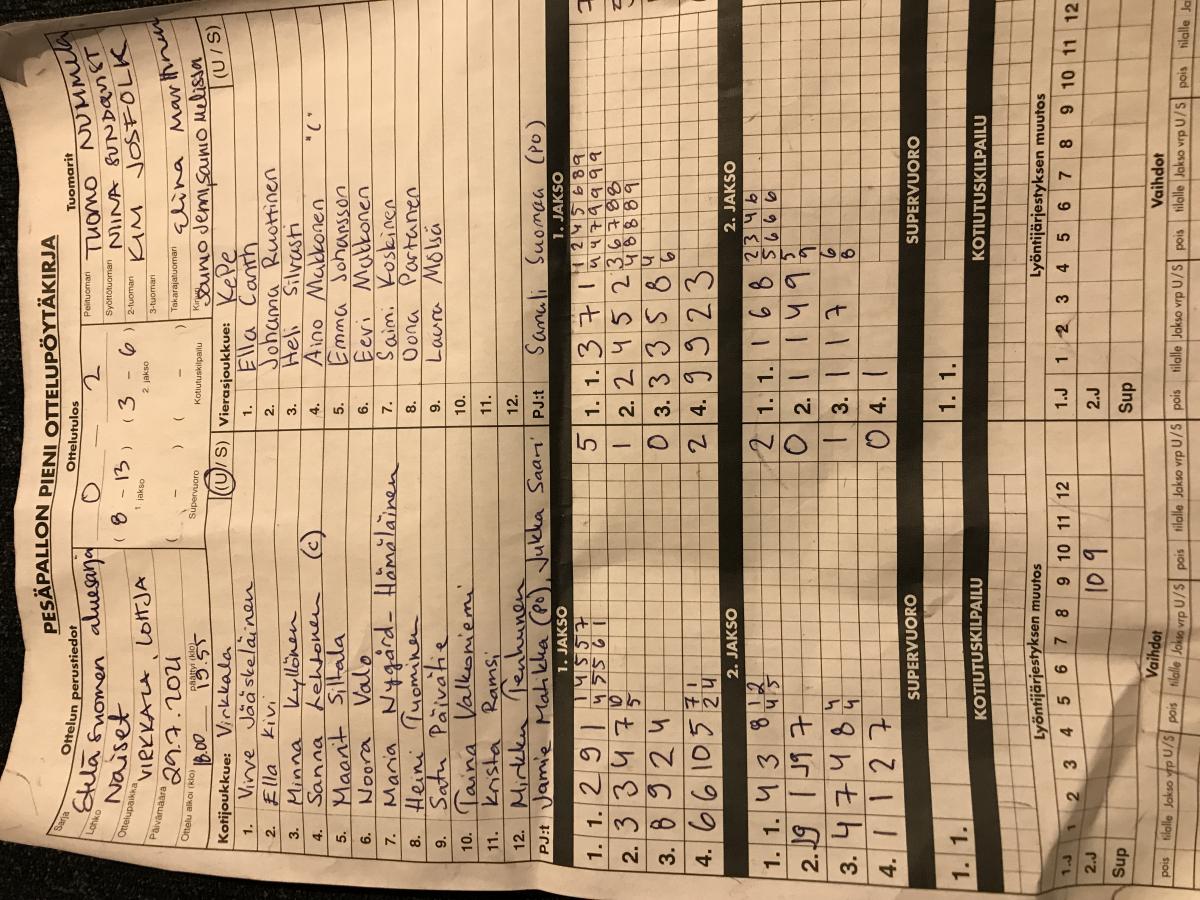 PESÄPALLON PIENI OTTELUPÖYTÄKIRJA
Ottelun perustiedot
Ottelutulos
Tuomarit
Sarja Etelä Suomen aluesarja
Lohko Naiset
Ottelupaikka VIRKKALA, LOHJA
Päivämäärä 29.7.2021
Ottelu alkoi (klo) 18.00 päättyi (klo) 19.55
0 - 2
( 8 - 13 ) ( 3 - 6 )
1. jakso 2. jakso
( - ) ( - )
Supervuoro Kotiutuskilpailu
Pelituomari TUOMO NUMMELA
Syöttötuomari NIINA SUNDQVIST
2-tuomari KIM JOSFOLK
3-tuomari
Takarajatuomari Elina Marttinen
Kirjuri Saunio Jemi, Saunio Melissa
Kotijoukkue: Virkkala (U / S)
1. Virve Jääskeläinen
2. Ella Kivi
3. Minna Kyllönen
4. Sanna Lehtonen (c)
5. Maarit Siltala
6. Noora Valo
7. Maria Nygård-Hämäläinen
8. Heini Tuominen
9. Satu Päivätie
10. Taina Valkoniemi
11. Krista Ramsi
12. Mirkku Tenhunen
PJ:t Jamie Mahkka (PO), Jukka Saari
Vierasjoukkue: KePe (U / S)
1. Ella Canth
2. Johanna Ruottinen
3. Heli Silvasti
4. Aino Mukkonen "C"
5. Emma Johansson
6. Eevi Mukkonen
7. Saimi Koskinen
8. Oona Partanen
9. Laura Mölsä
10.
11.
12.
PJ:t Samuli Suonaa (PO)
1. JAKSO
1. 1. 2 9 1 1 4 5 5 7
4 5 5 6 1
2. 3 3 4 7 10
5
3. 8 9 2 4
4. 6 6 10 5 7 1
2 4
2. JAKSO
1. 1. 4 3 8 1 2
4 5
2. 9 1 9 7
3. 4 7 4 8 4
4
4. 1 1 2 7
SUPERVUORO
1. 1.
KOTIUTUSKILPAILU
1. JAKSO
5 1. 1. 3 7 1 1 2 4 5 6 8 9
4 4 7 9 9 9 9
1 2. 2 4 5 2 3 6 7 8 8
4 8 8 8 9
0 3. 3 3 5 8 4
6
2 4. 9 9 2 3
2. JAKSO
2 1. 1. 1 6 8 2 3 4 6
5 6 6 6
0 2. 1 1 4 9 5
9
1 3. 1 1 7 6
8
0 4. 1
SUPERVUORO
1. 1.
KOTIUTUSKILPAILU
Lyöntijärjestyksen muutos
1.J 1 2 3 4 5 6 7 8 9 10 11 12
2.J 10 9
Sup
Lyöntijärjestyksen muutos
1.J 1 2 3 4 5 6 7 8 9 10 11 12
2.J
Sup
Vaihdot
pois tilalle Jakso vrp U / S pois tilalle Jakso vrp U / S pois tilalle Jakso vrp U / S
Vaihdot
pois tilalle Jakso vrp U / S pois tilalle Jakso vrp U / S pois tilalle